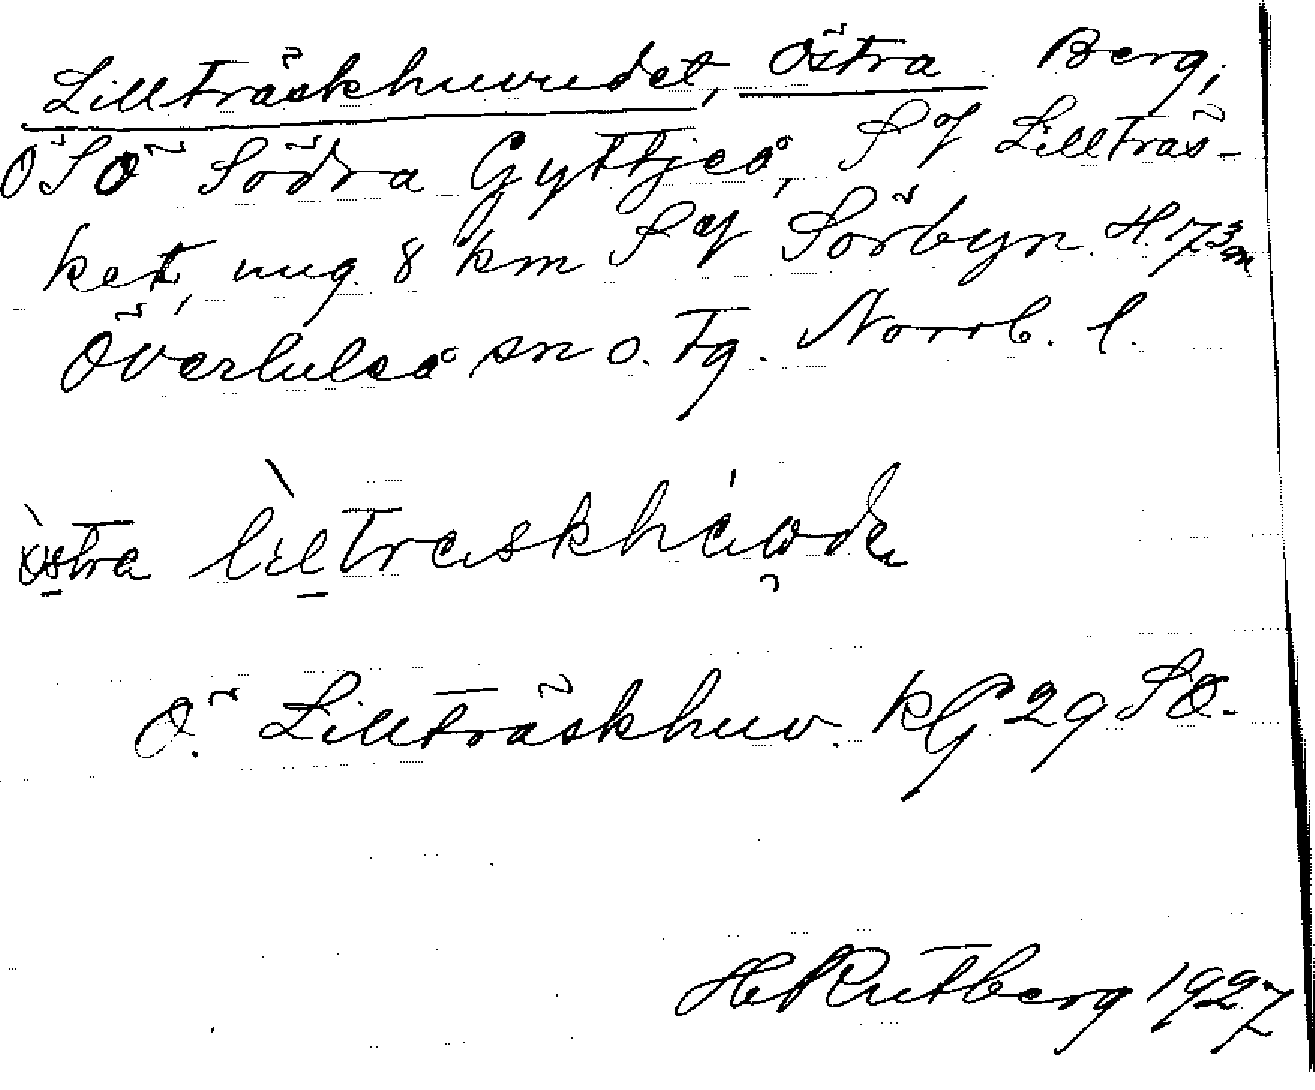 Lillträskhuvudet, Östra Berg,
ÖSÖ Södra Gyttjeå, S of Lillträs-
ket, ung. 8 km S of Sörbyn. H. 173 m
Överluleå sn o. tg. Norrb. l.
östra liltraskhåvde
Ö. Lillträskhuv. KG 29 SO.
H Rutberg 1927